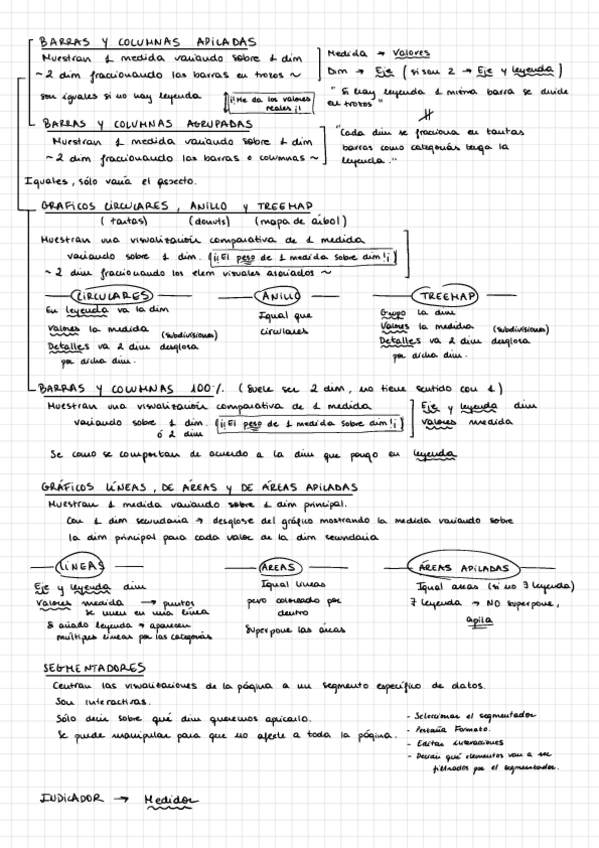 BARRAS Y COLUMNAS APILADAS
Muestran 1 medida variando sobre 1 dim
~ 2 dim fraccionando las barras en trozos ~
son iguales si no hay leyenda
¡¡Me da los valores reales¡!
Medida → Valores
Dim → Eje (si son 2 → Eje y leyenda)
"Si hay leyenda 1 misma barra se divide
en trozos"
BARRAS Y COLUMNAS AGRUPADAS
Muestran 1 medida variando sobre 1 dim
~ 2 dim fraccionando las barras o columnas ~
"Cada dim se fracciona en tantas
barras como categorías tenga la
leyenda."
Iguales, sólo varía el aspecto.
GRAFICOS CIRCULARES, ANILLO Y TREEMAP
(tartas) (donuts) (mapa de árbol)
Muestran una visualización comparativa de 1 medida
variando sobre 1 dim. (¡¡El peso de 1 medida sobre dim!¡)
~ 2 dim fraccionando los elem visuales asociados ~
CIRCULARES
En leyenda va la dim
Valores la medida (subdivisiones)
Detalles va 2 dim desglosa
por dicha dim.
ANILLO
Igual que
circulares
TREEMAP
Grupo la dim
Valores la medida (subdivisiones)
Detalles va 2 dim desglosa
por dicha dim.
BARRAS Y COLUMNAS 100%. (Suele ser 2 dim, no tiene sentido con 1)
Muestran una visualización comparativa de 1 medida
variando sobre 1 dim. (¡¡El peso de 1 medida sobre dim!¡)
ó 2 dim
Eje y leyenda dim
valores medida
Se como se comportan de acuerdo a la dim que pongo en leyenda
GRÁFICOS LÍNEAS, DE ÁREAS Y DE ÁREAS APILADAS
Muestran 1 medida variando sobre 1 dim principal.
Con 1 dim secundaria → desglose del gráfico mostrando la medida variando sobre
la dim principal para cada valor de la dim secundaria
LÍNEAS
Eje y leyenda dim
Valores medida → puntos
se unen en una línea
Si añado leyenda → aparecen
multiples líneas por las categorías
ÁREAS
Igual líneas
pero coloreado por
dentro
Superpone las áreas
ÁREAS APILADAS
Igual areas (si no ∃ leyenda)
∃ leyenda → NO superpone,
apila
SEGMENTADORES
Centran las visualizaciones de la página a un segmento específico de datos.
Son interactivas.
Sólo decir sobre qué dim queremos aplicarlo.
Se puede manipular para que no afecte a toda la página.
- Seleccionar el segmentador
- Pestaña Formato.
- Editar interacciones
- Decidir qué elementos van a ser
filtrados por el segmentador.
INDICADOR → Medidor